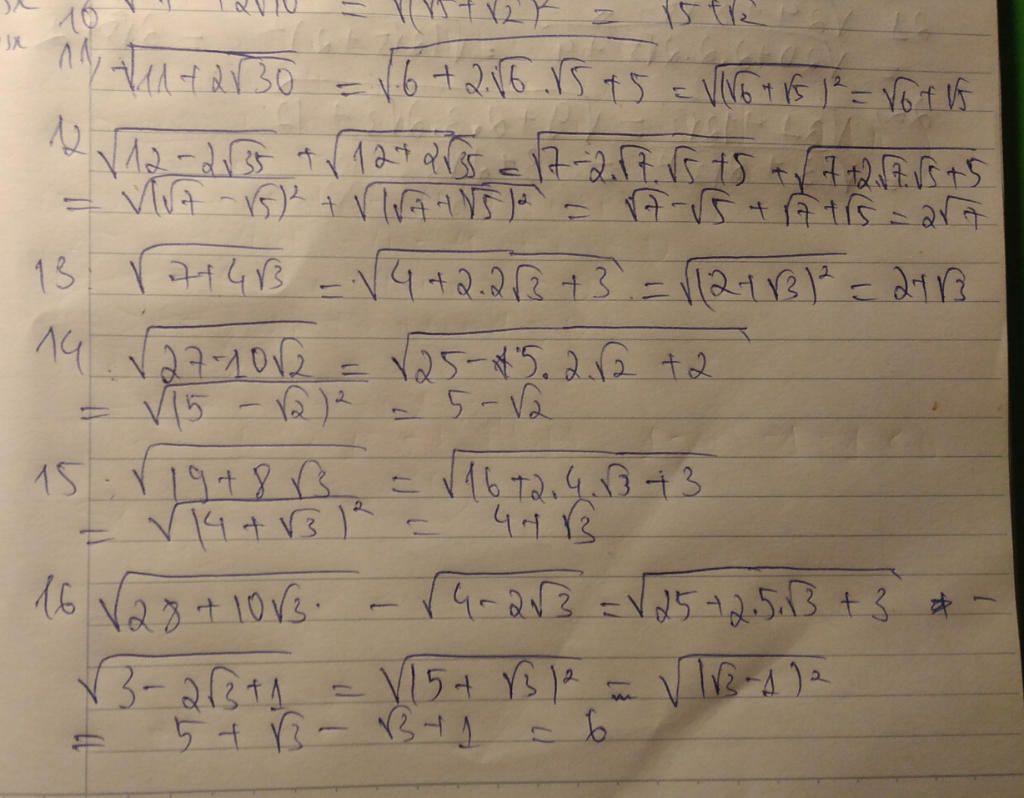 10 √(7+2√10) = √(√5+√2)² = √5+√2
11, √11+2√30 = √6+2.√6.√5+5 = √(√6+√5)² = √6+√5
12 √12-2√35 + √12+2√35 = √7-2.√7.√5+5 + √7+2.√7.√5+5
= √(√7-√5)² + √(√7+√5)² = √7-√5+√7+√5 = 2√7
13 √7+4√3 = √4+2.2√3+3 = √(2+√3)² = 2+√3
14 √27-10√2 = √25-5.2.√2+2
= √(5-√2)² = 5-√2
15 √19+8√3 = √16+2.4.√3+3
= √(4+√3)² = 4+√3
16 √28+10√3 - √4-2√3 = √25+2.5.√3+3 -
√3-2√3+1 = √(5+√3)² - √(√3-1)²
= 5+√3-√3+1 = 6